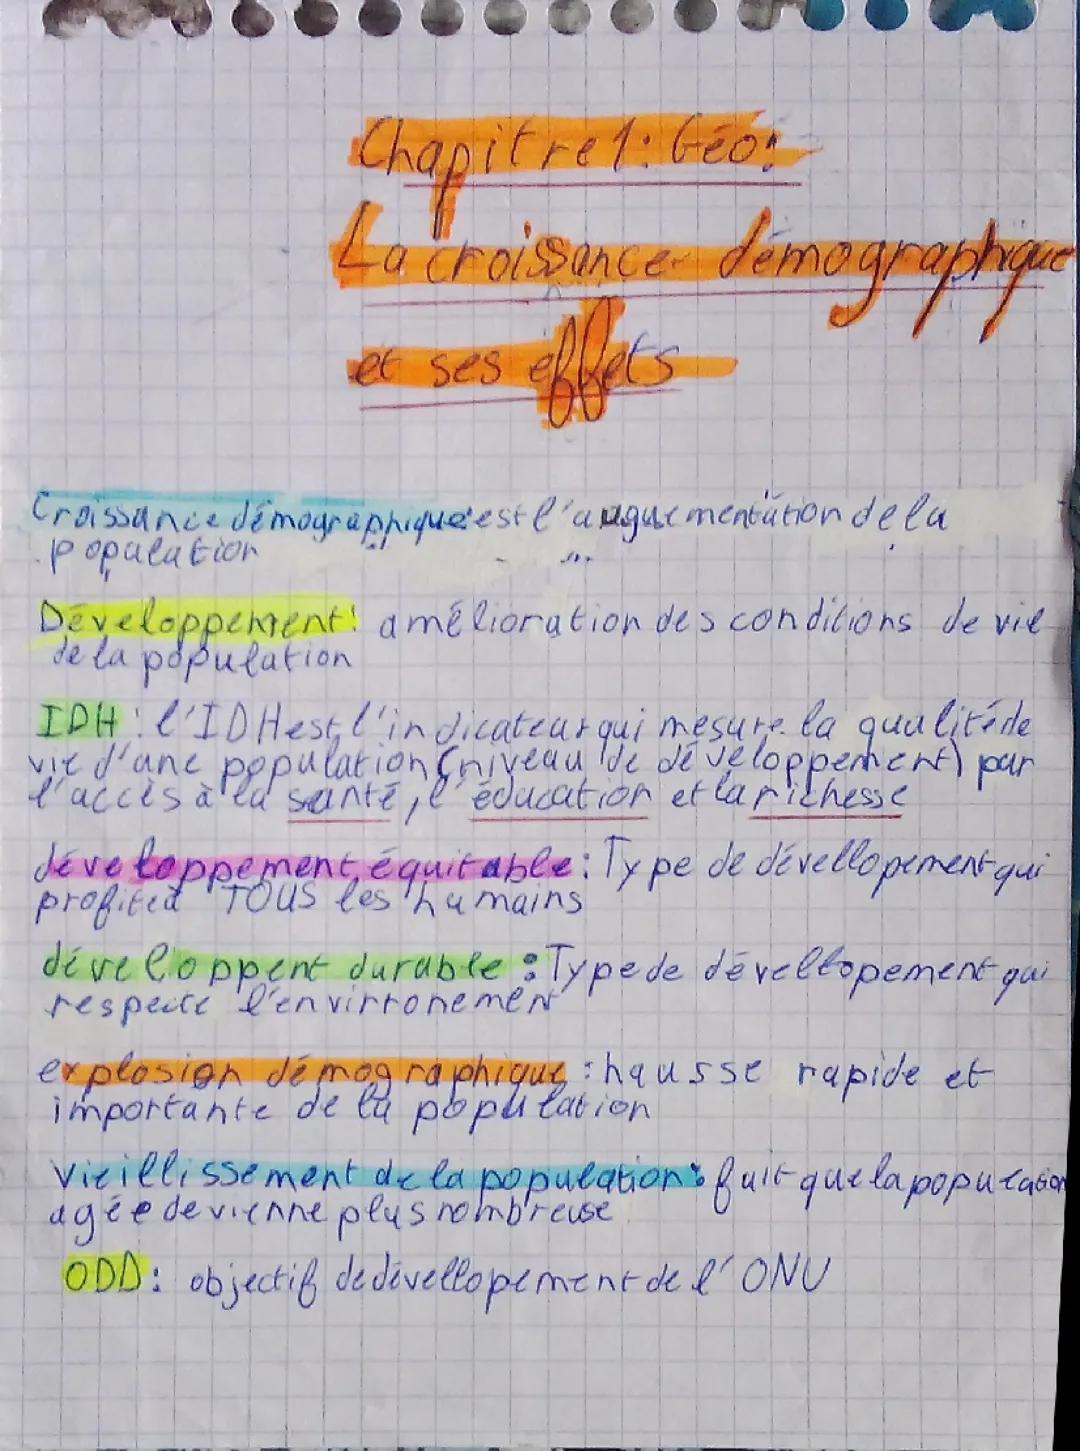 Chapitre 1: Géo:
La croissance démographique
et ses effets
Croissance démographique: est l'augumentation de la
population
Développement: amélioration des conditions de vie
de la population
IDH: l'IDH est l'indicateur qui mesure la qualité de
vie d'une population (niveau de développement) par
l'accès à la santé, l'éducation et la richesse
développement équitable: Type de dévellopement qui
profite à TOUS les humains
développent durable: Type de dévellopement qui
respecte l'envirronement
explosion démographique: hausse rapide et
importante de la population
Vieillissement de la population: fait que la population
agée devienne plus nombreuse
ODD: objectif de dévellopement de l'ONU